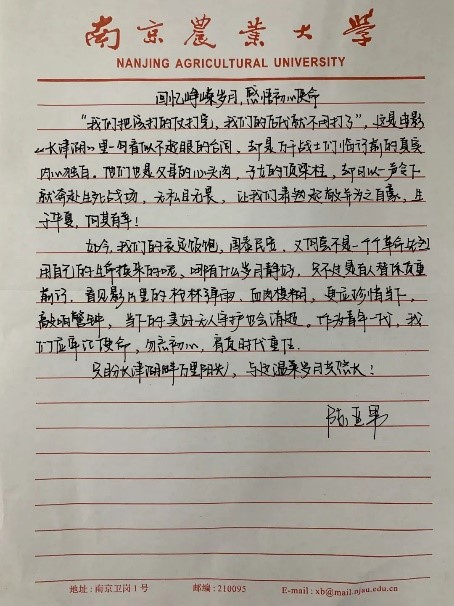 南京農業大學
NANJING AGRICULTURAL UNIVERSITY
回忆峥嵘岁月,感悟初心使命
“我们把该打的仗打完,我们的后代就不用打了”,这是电影
《长津湖》里一句看似不起眼的台词,却是万千战士们临行前的真实
内心独白。他们也是父母的心头肉,子女的顶梁柱,却可以一声令下
就奔赴生死战场,无私且无畏,让我们肃然起敬并为之自豪,生
于华夏,何其有幸!
如今,我们的衣足饭饱,国泰民安,又何尝不是一个个革命先烈
用自己的生命换来的呢,哪有什么岁月静好,只不过是有人替你负重
前行,看见影片里的枪林弹雨,血肉模糊,更应珍惜当下,
敲响警钟,当下的美好无人守护也会消逝。作为青年一代,我
们应牢记使命,勿忘初心,肩负时代重任。
只盼长津湖畔万里阳光,与这温柔岁月共绵长!
陈亚男
地址:南京卫岗1号
邮编:210095
E-mail:xb@mail.njau.edu.cn